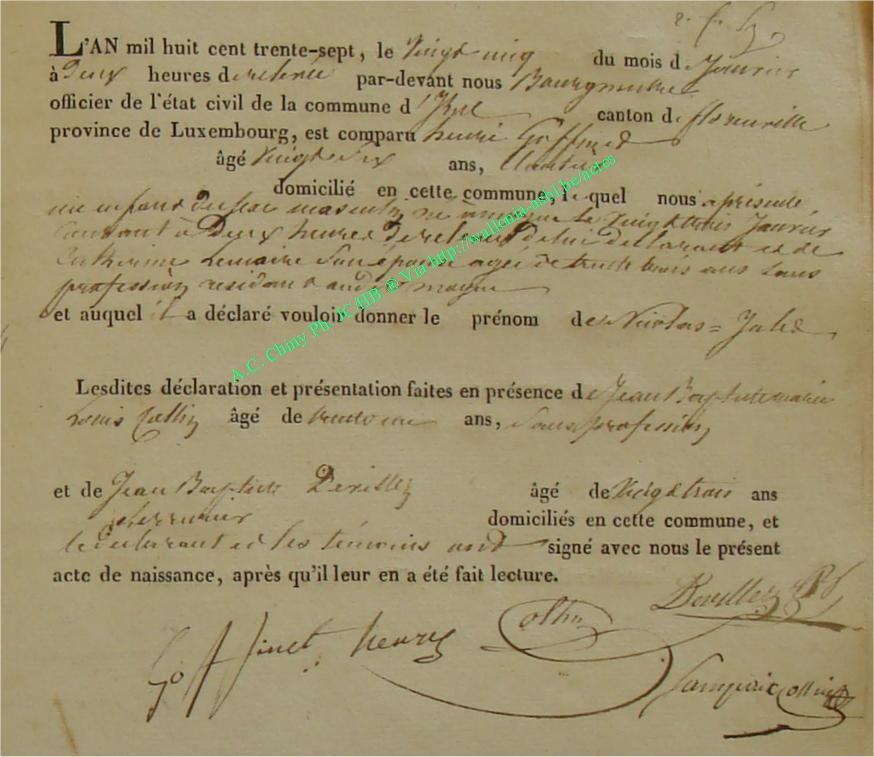 L'AN mil huit cent trente-sept, le vingt cinq du mois de Janvier
à Deux heures de relevée par-devant nous Bourgmestre
officier de l'état civil de la commune d'Izel canton de florenville
province de Luxembourg, est comparu henri Goffinet
âgé Vingt ans,
domicilié en cette commune, le quel nous a présenté
un enfant du sexe masculin, né à Moyen le Vingt trois Janvier
Courant à Deux heures de relevée de lui déclarant et de
Catherine Lemaire Son épouse agée de trente trois ans Sans
profession résidant audit moyen
et auquel il a déclaré vouloir donner le prénom de Nicolas = Jules
Lesdites déclaration et présentation faites en présence de Jean Baptiste marie
Louis Collin âgé de ans, Sans profession
et de Jean Baptiste Devillez âgé de Vingt trois ans
serrurier domiciliés en cette commune, et
le déclarant et les témoins ont signé avec nous le présent
acte de naissance, après qu'il leur en a été fait lecture.
Devillez
Goffinet henry Collin
A.C. Chiny Ph. JC4HB @ Via http://wallonia-asbl.be/actes